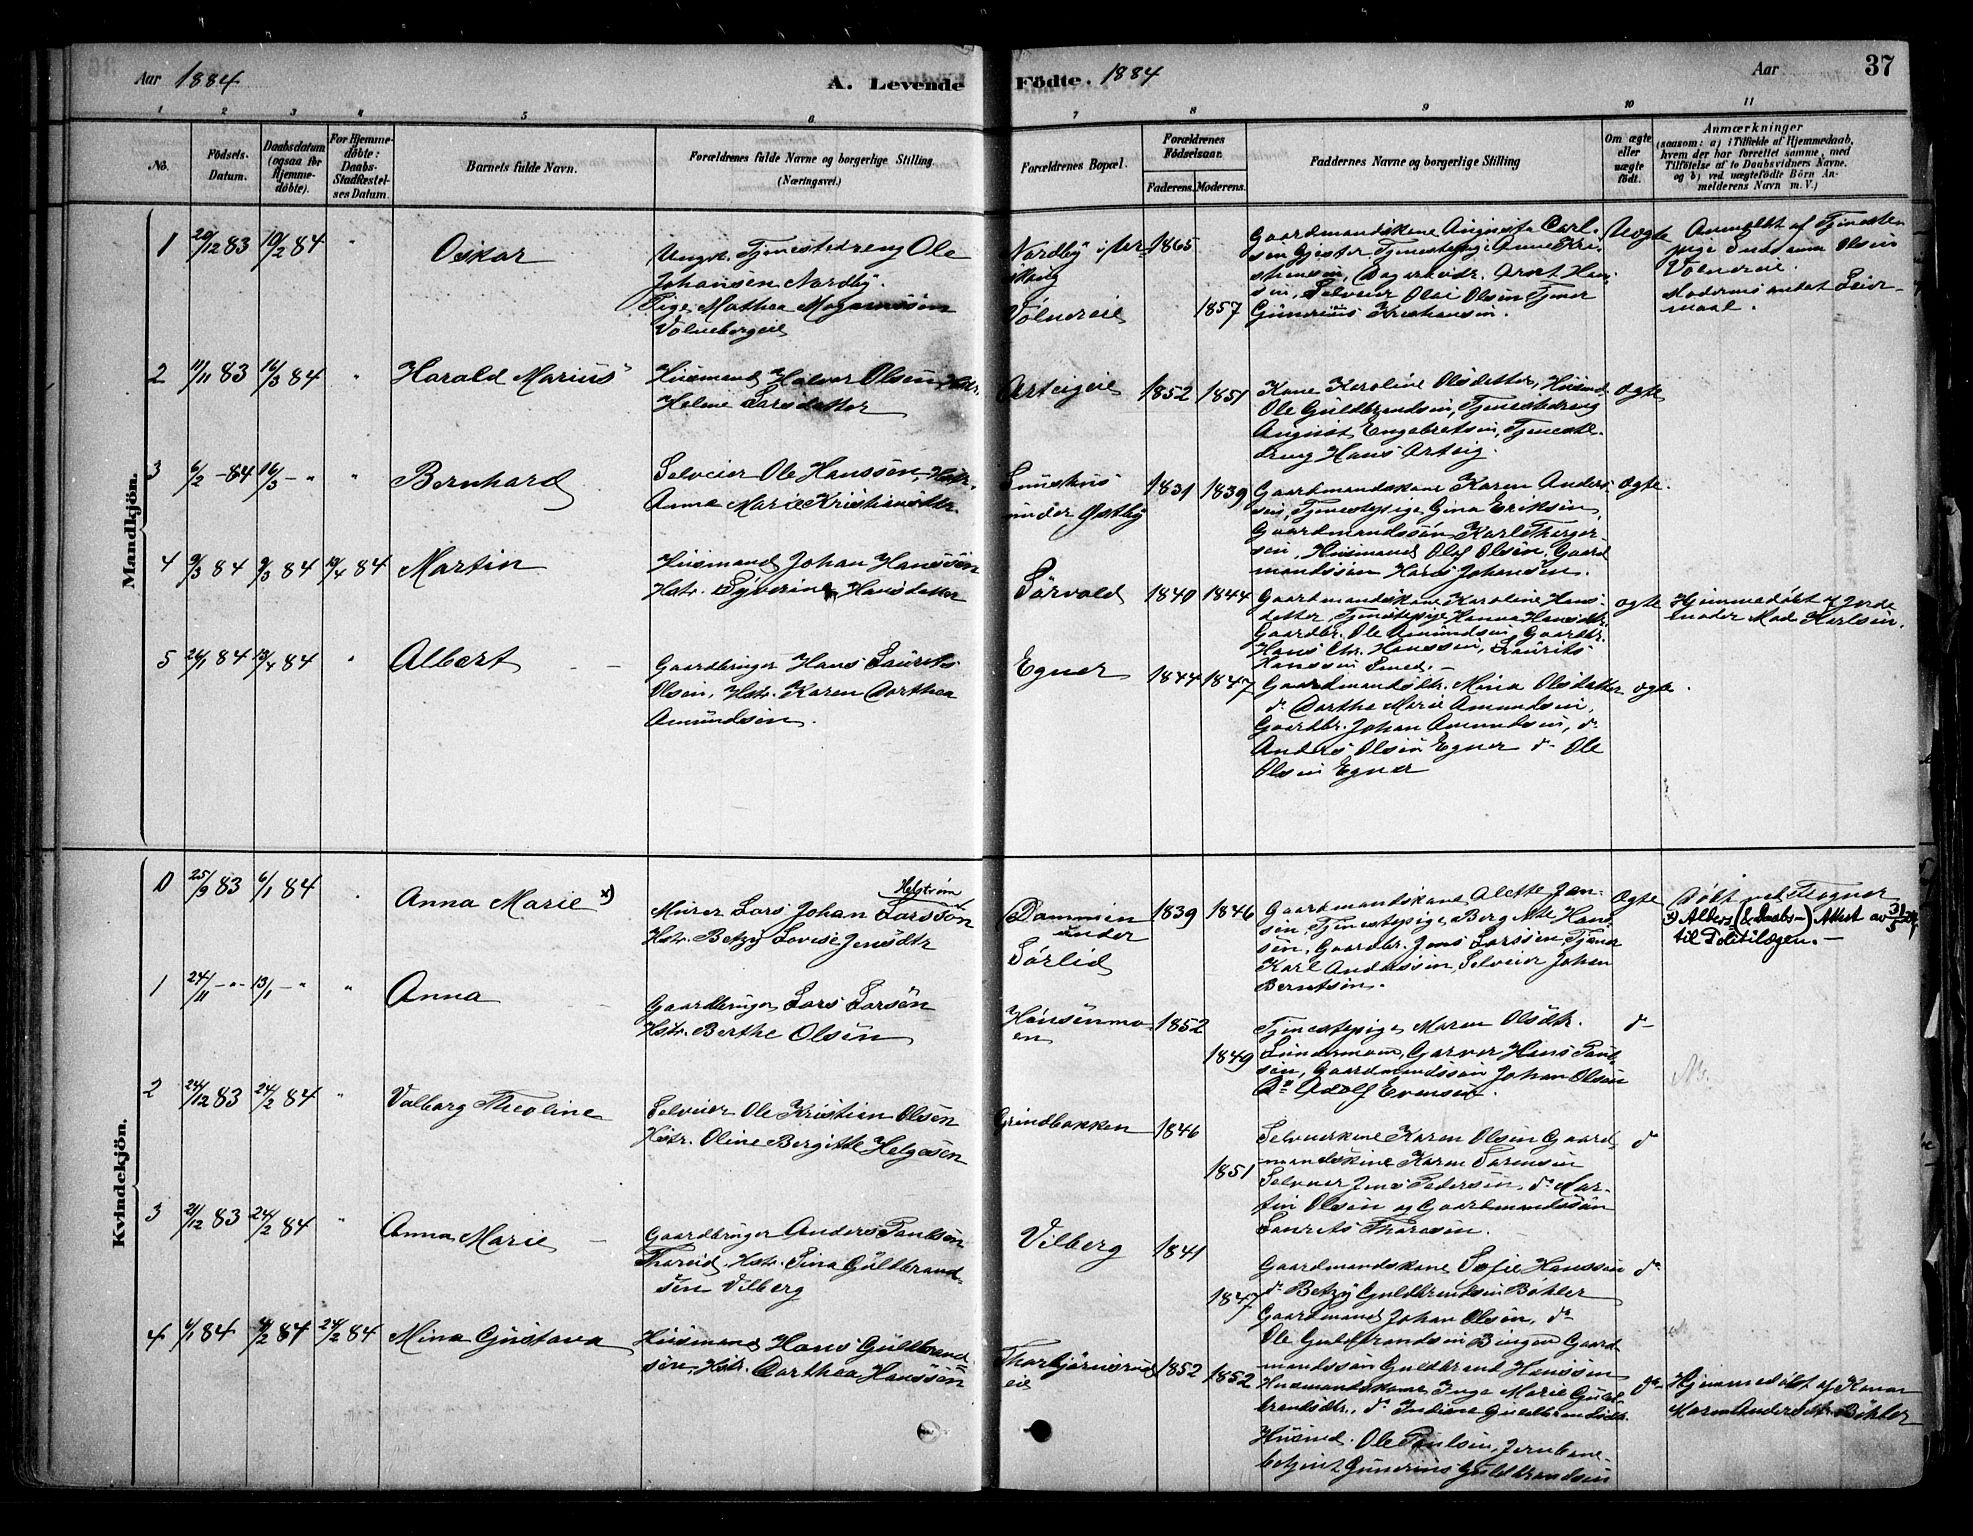 Aar 1884
A. Levende
Födte. 1884
Aar
37
1 2 3 4 5 6 7 8 9 10 11
No.
Födsels-
Datum.
Daabsdatum
(ogsaa for
Hjemme-
döbte).
For Hjemme-
döbte:
Daabs-
Stadfæstel-
ses Datum.
Barnets fulde Navn.
Forældrenes fulde Navne og borgerlige Stilling
(Næringsvei.)
Forældrenes Bopæl.
Forældrenes
Födselsaar.
Faderens. Moderens.
Faddernes Navne og borgerlige Stilling
Om ægte
eller
uægte
födt.
Anmærkninger
(saasom: a) i Tilfælde af Hjemmedaab,
hvem der har forrettet samme, med
Tilföielse af to Daabsvidners Navne.
og b) ved uægtefödte Börn An-
melderens Navn m. V.)
Mandkjön.
1 20/12 83 10/2 84 " Oskar
Ungk. Tjenestedreng Ole
Johansen Nordby.
Pige Mathea
Volnebergeie
Nordby i
Volnereie
1865
1857
Gaardmandskone Augusta Carl-
sen Tjenestepige Anne Kri-
stiansen,
sen, Selveier Olai Olsen Tjener
Gunerius Kristiansen.
Uægte
Anmeldt af Tjeneste-
pige Olsen
Volnereie.
Moderens andet Leier-
maal.
2 11/11 83 16/3 84 " Harald Marius
Husmand Halvor Olsen Hstr.
Helene Larsdatter
Arteigeie
1852 1851
Kone Karoline Olsdatter, Husmd.
Ole Guldbrandsen, Tjenestedreng
August Engebretsen, Tjeneste-
dreng Hans Arteig.
ægte
3 6/2 -84 16/3 - " " Bernhard
Selveier Ole Hanssen, Hstr.
Anne Marie Kristiansdtr.
under Østby
1831 1839
Gaardmandskone Karen Anders-
sen, Tjenestepige Gina Eriksen,
Gaardmandssøn Karl Therger-
sen, Husmand Olof Olsen, Gaard
mandssøn Hans Johansen.
ægte.
4 9/3 84 9/3 84 19/4 84 Martin
Husmand Johan Hanssøn
Hstr. Syverine Hansdatter
Sørvald
1840 1844
Gaardmandskone Karoline Hans-
datter, Tjenestepige Hanna Hansdtr.
Gaardbr. Ole Amundsen, Gaardbr.
Hans Chr. Hanssen, Laurits
Hanssen Smed. -
ægte
Hjemmedøbt af Jorde
moder Mad Karlsen.
5 26/1 84 13/4 84 " Albert
Gaardbruger Hans Laurits
Olsen, Hstr. Karen Dorthea
Amundsen.
Egner
1844 1847
Gaardmandsdtr. Mina Olsdatter
do Dorthe Marie Amundsen,
Gaardbr. Johan Amundsen, do
Anders Olsen Egner do Ole
Olsen Egner
ægte.
Kvindekjön.
0 25/9 83 6/1 84 Anna Marie x)
Helstrøm
Murer Lars Johan Larssøn
Hstr. Betzy Lovise Jensdtr
Dammen
under
Sørlid
1839 1846
Gaardmandskone Alette Jan-
sen Tjenestepige Bergitte Han-
sen, Gaardbr. Jens Larssen, Tjener
Karl Anderssen, Selveier Johan
Berntsen.
Ægte
Døbt ved
x) Alders (& Daabs-) Attest av 31/5
til Politilægen. -
1 24/11 - " 13/1 - " " Anna
Gaardbruger Lars Larsøn
Hstr. Berthe Olsøn
Hønsenmo-
en
1852
1849
Tjenestepige Maren Olsdtr.
Garver Hans Paul-
søn, Gaardmandssøn Johan Olsøn
Do Adolf Evensen.
do
2 24/12 83 24/2 84 " Valborg Theoline
Selveier Ole Kristian Olsen
Hstr. Oline Bergitte Helgesen
Grindbakken
1846
1851
Selveierkone Karen Olsen Gaard
mandskone Karen Sørensen
Selveier Jens Pedersen, do Mar-
tin Olsen og Gaardmandssøn
Laurits Thoresen.
do
3 21/12 83 24/2 84 " Anna Marie
Gaardbruger Anders Paulsøn
Hstr. Sina Guldbrand-
sen Vilberg
Vilberg
1841
1847
Gaardmandskone Sofie Hanssen
do Betzy Guldbrandsen Bøhler
Gaardmand Johan Olsen, do
Ole Guldbrandsen Bingen Gaard-
mandssøn Guldbrand Hanssen
do
4 6/1 84 4/2 84 24/2 84 Mina Gustava
Husmand Hans Guldbrand-
sen, Hstr. Dorthea Hanssøn
Thorbjørnsrud
eie
1852 1852
Husmandskone Inge Marie Guld-
brandsdtr., do Indiane Guldbrandsdtr.
Husmd. Ole Paulsen, Jernbane-
betjent Gunerius Guldbrandsen
do
Hjemmedøbt af Konen
Maren Andersdtr. Bøhler